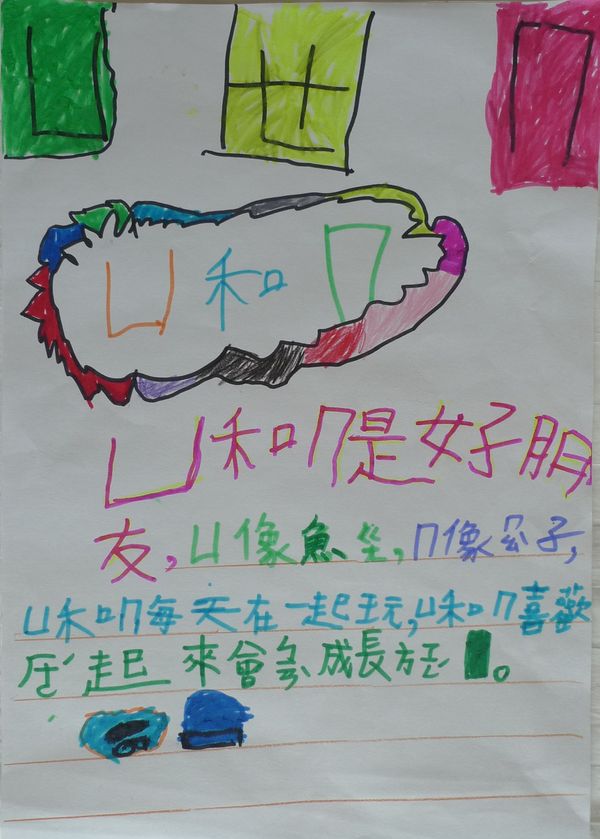 凵 世 冂
凵和冂
凵和冂是好朋
友,凵像魚,冂像子,
凵和冂每天在一起玩,凵和冂喜歡
起來會成長方。